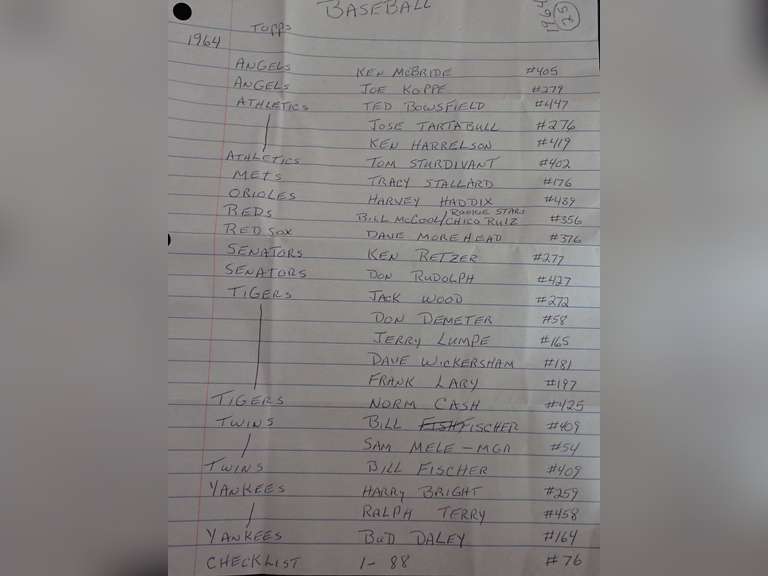 BASEBALL
1964
25
TOPPS
1964
ANGELS KEN McBRIDE #405
ANGELS JOE KOPPE #279
ATHLETICS TED BOWSFIELD #447
JOSE TARTABULL #276
KEN HARRELSON #419
ATHLETICS TOM STURDIVANT #402
METS TRACY STALLARD #176
ORIOLES HARVEY HADDIX #489
REDS BILL McCOOL/CHICO RUIZ ROOKIE STARS #356
RED SOX DAVE MOREHEAD #376
SENATORS KEN RETZER #277
SENATORS DON RUDOLPH #427
TIGERS JACK WOOD #272
DON DEMETER #58
JERRY LUMPE #165
DAVE WICKERSHAM #181
FRANK LARY #197
TIGERS NORM CASH #425
TWINS BILL FISCHER #409
SAM MELE - MGR #54
TWINS BILL FISCHER #409
YANKEES HARRY BRIGHT #259
RALPH TERRY #458
YANKEES BUD DALEY #164
CHECKLIST 1- 88 #76